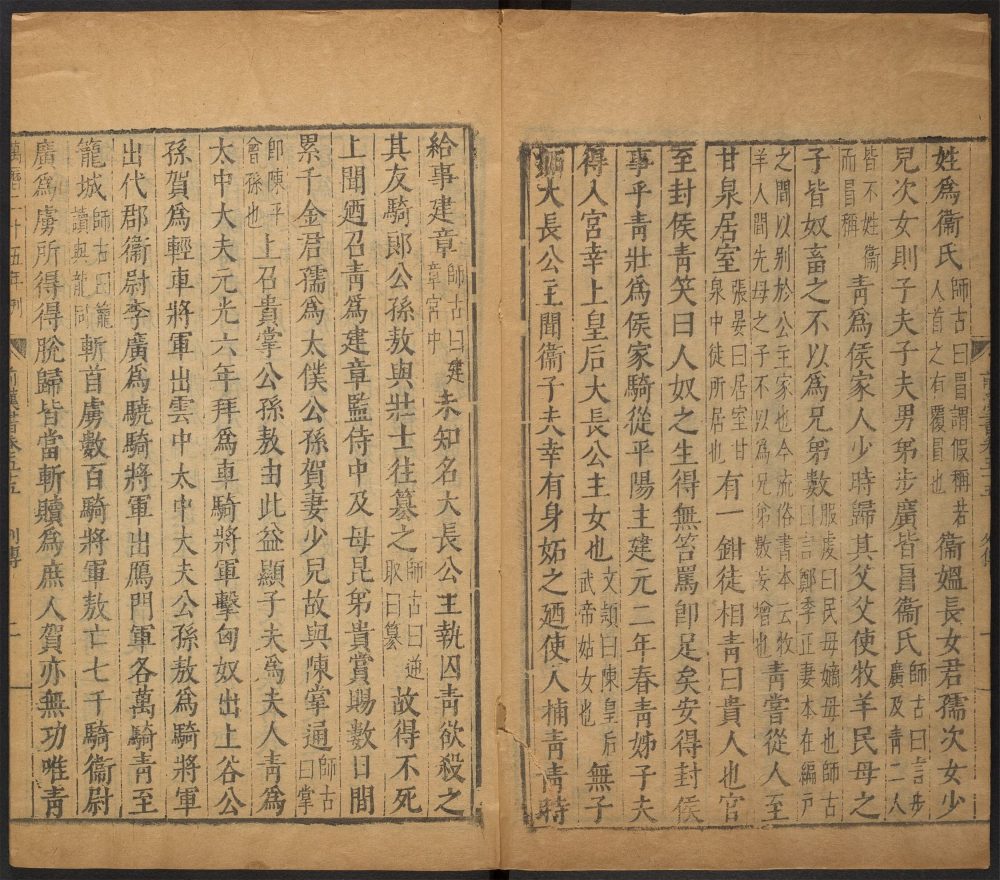 姓為衞氏師古曰冒謂假稱若人首之有覆冒也衞媼長女君孺次女少
兒次女則子夫子夫男弟步廣皆冒衞氏師古曰言步廣及青二人
皆不姓衞而冒稱青為侯家人少時歸其父父使牧羊民母之
子皆奴畜之不以為兄弟數服虔曰民母嫡母也師古曰言鄭季正妻本在編戶
之間以别於公主家也今流俗書本云牧羊人間先母之子不以為兄弟數妄增也青嘗從人至
甘泉居室張晏曰居室甘泉中徒所居也有一鉗徒相青曰貴人也官
至封侯青笑曰人奴之生得無笞罵即足矣安得封侯
事乎青壯為侯家騎從平陽主建元二年春青姊子夫
得入宮幸上皇后大長公主女也文頴曰陳皇后武帝姑女也無子
妬大長公主聞衞子夫幸有身妬之廼使人捕青青時
給事建章師古曰建章宮中未知名大長公主執囚青欲殺之
其友騎郎公孫敖與壯士往篡之師古曰逆取曰篡故得不死
上聞廼召青為建章監侍中及母昆弟貴賞賜數日間
累千金君孺為太僕公孫賀妻少兒故與陳掌通師古曰掌
即陳平曾孫也上召貴掌公孫敖由此益顯子夫為夫人青為
太中大夫元光六年拜為車騎將軍擊匈奴出上谷公
孫賀為輕車將軍出雲中太中大夫公孫敖為騎將軍
出代郡衞尉李廣為驍騎將軍出鴈門軍各萬騎青至
籠城師古曰籠讀與龍同斬首虜數百騎將軍敖亡七千騎衞尉
廣為虜所得得脫歸皆當斬贖為庶人賀亦無功唯青
萬曆二十五年刊 前漢書卷五十五 列傳 二